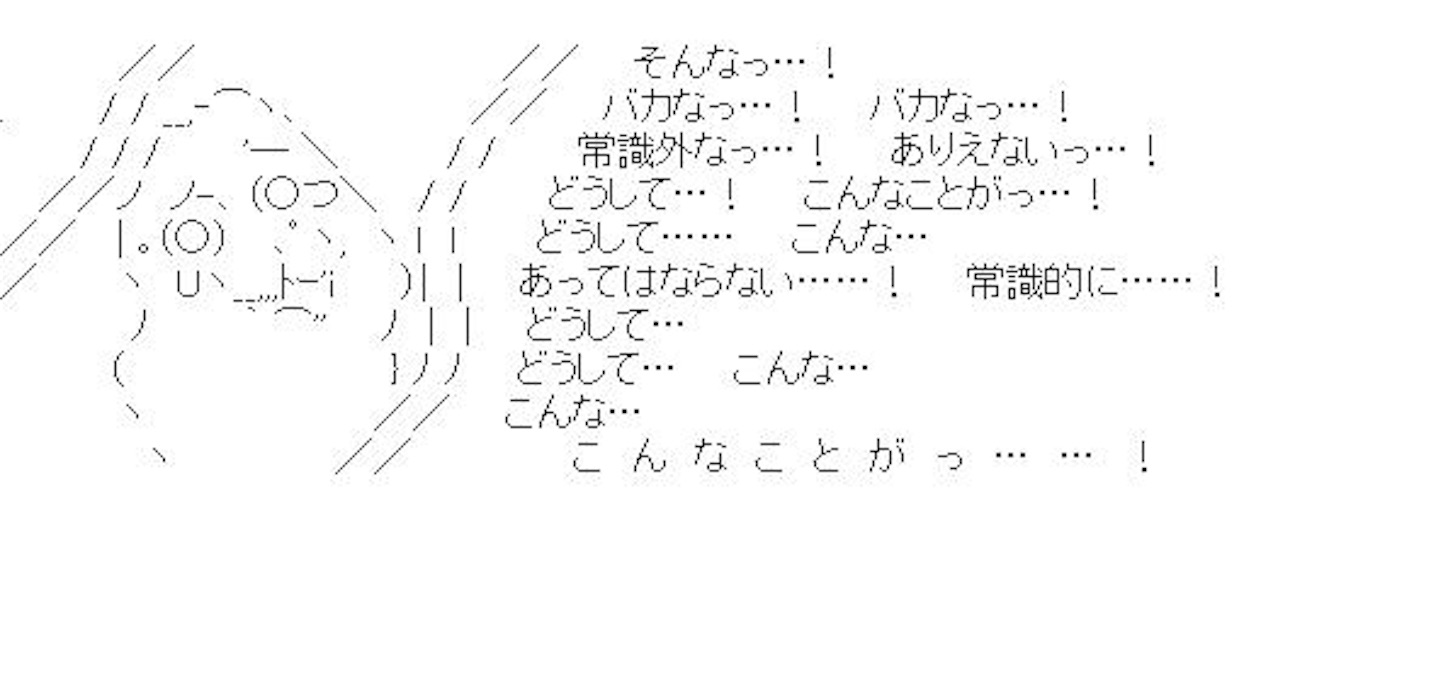 そんなっ…！
バカなっ…！　バカなっ…！
常識外なっ…！　ありえないっ…！
どうして…！　こんなことがっ…！
どうして……　こんな…
あってはならない……！　常識的に……！
どうして…
どうして…　こんな…
こんな…
こ ん な こ と が っ … … ！